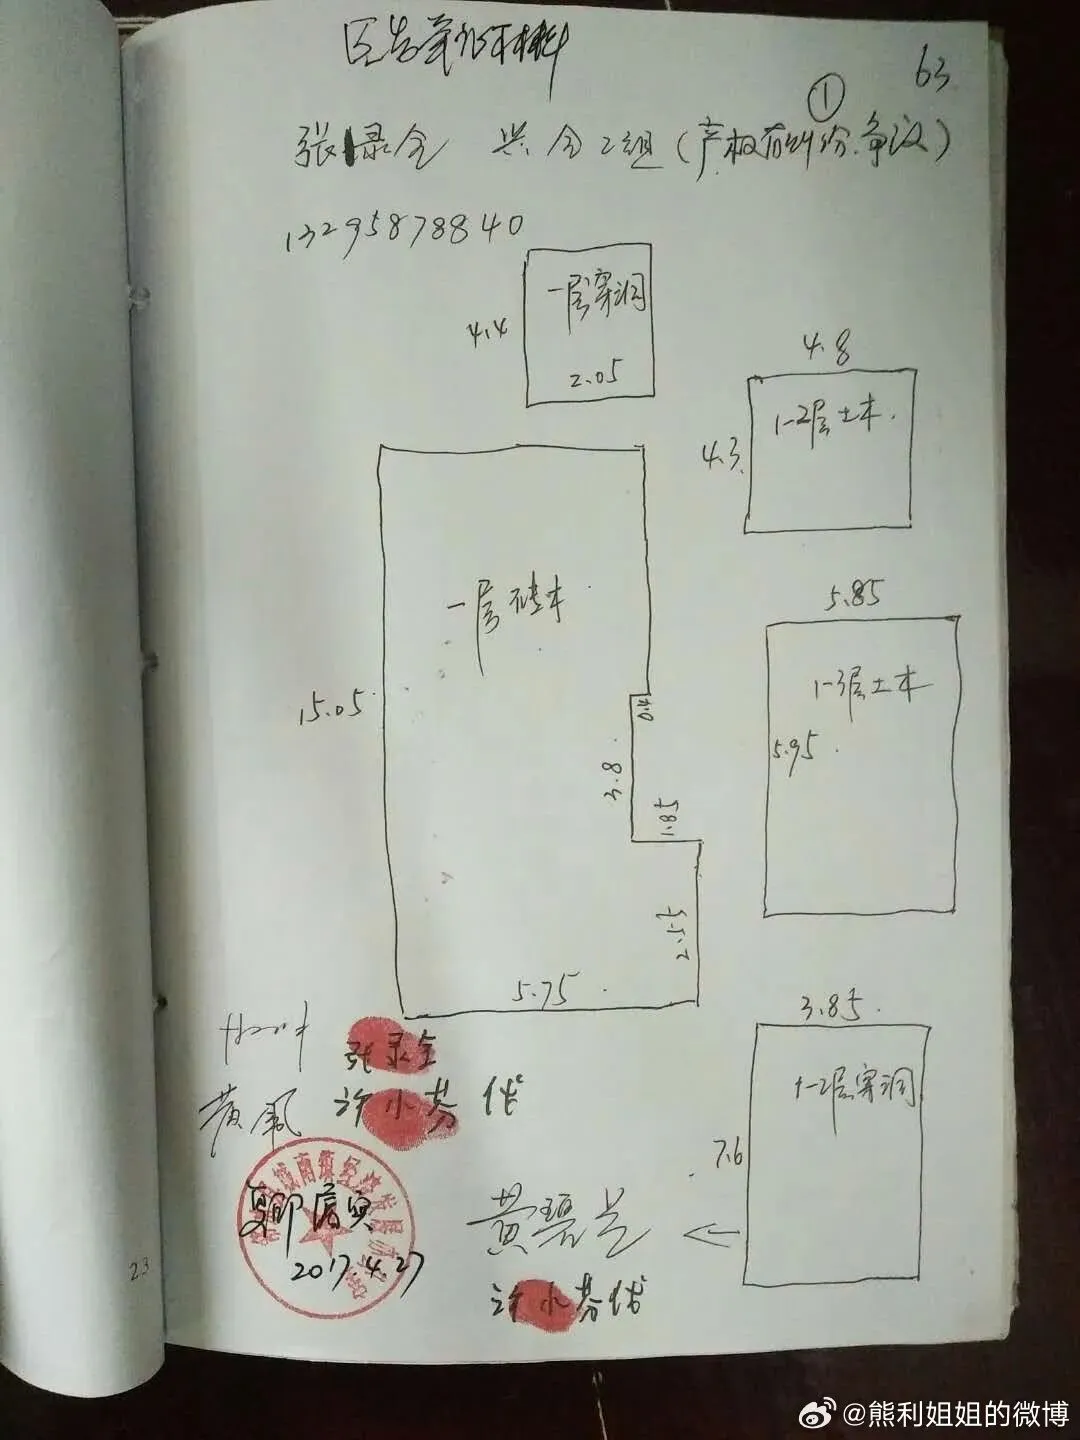 63
①
张录全 兴全2组(产权有纠纷.争议)
13295878840
一层穿洞
4.4
2.05
4.8
1-2层土木.
4.3
一层砖木
15.05
0.4
3.8
1.85
2.55
5.75
5.85
1-3层土木
5.95
3.85
1-2层穿洞
7.6
张录全
许小芬代
复印属实
2017.4.27
城南镇经济发展
黄碧兰
许小芬代
23
@熊利姐姐的微博